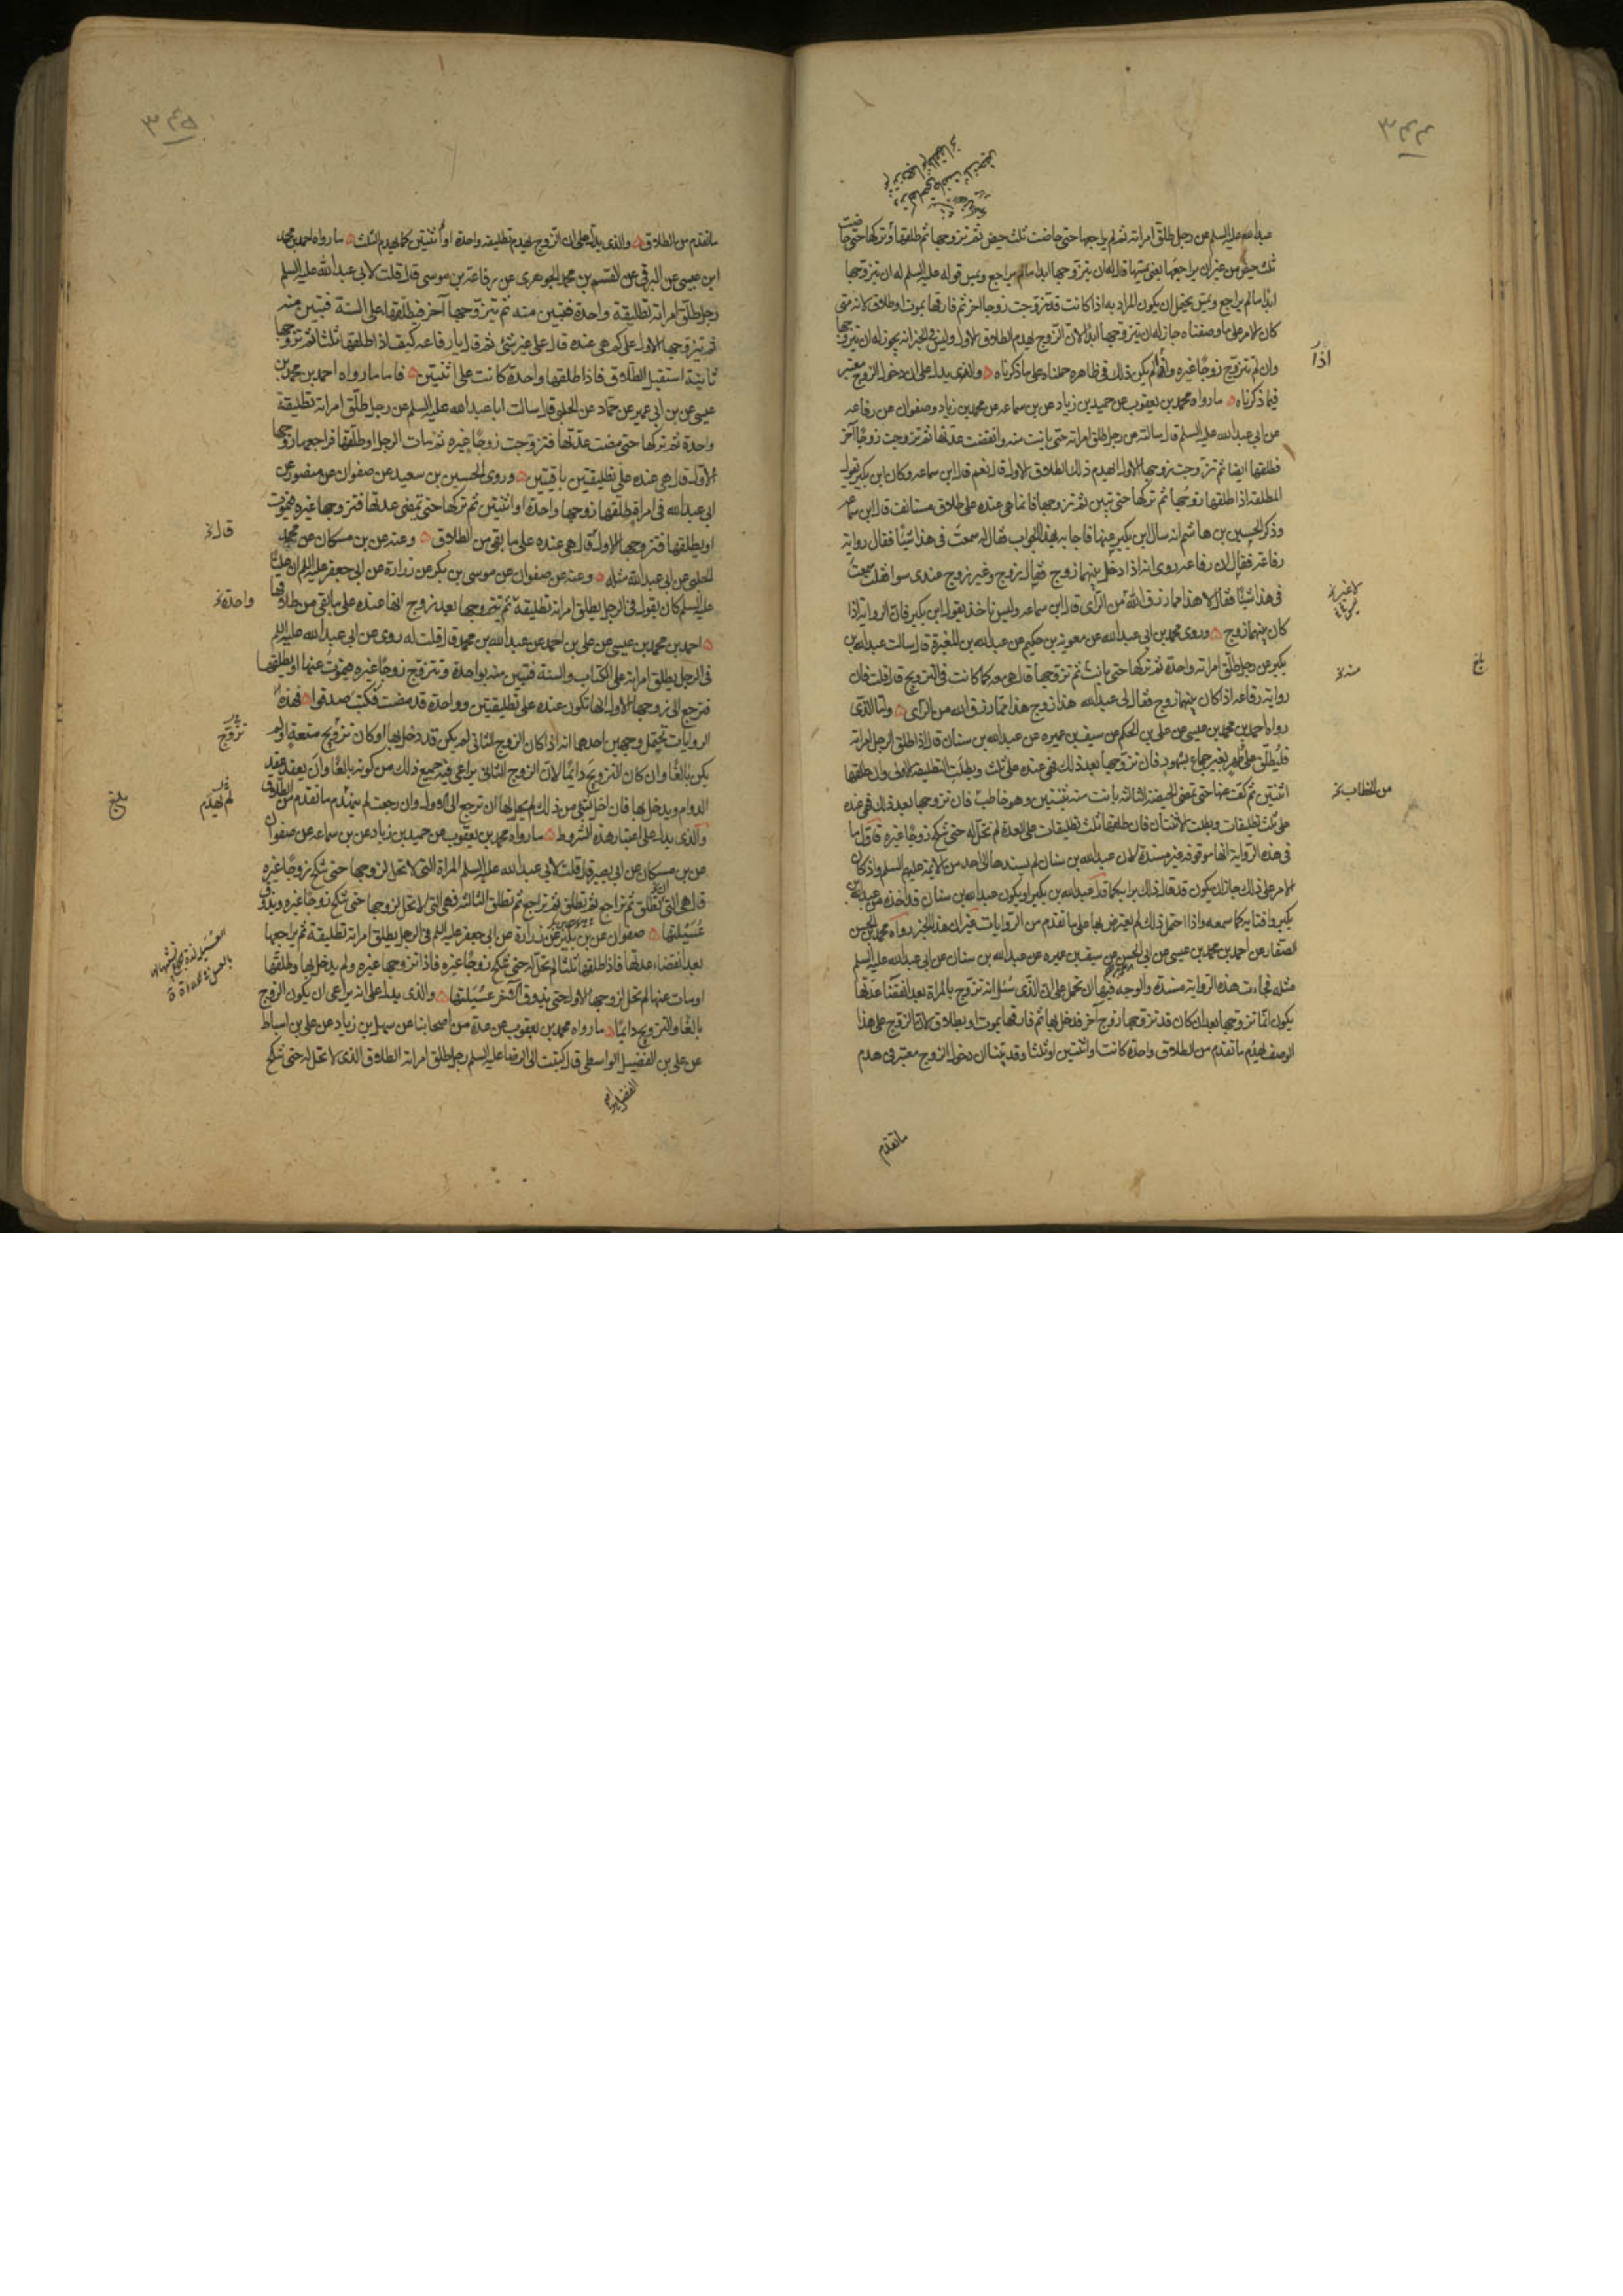 ٣٤٤
عبدالله عليه السلم عن رجل طلق امراته ثم لم يراجعها حتى حاضت ثلث حيض ثم تزوجها ثم طلقها وتركها حتى حاضت
ثلث حيض من غير ان يراجعها يعني يمسها قال له ان يتزوجها ابدا مالم يراجع ويمس قوله عليه السلم له ان يتزوجها
ابدا مالم يراجع ويمس يحتمل ان يكون المراد به اذا كانت قد تزوجت زوجا اخر ثم فارقها بموت او طلاق لانه متى
كان الامر على ما وصفناه جاز له ان يتزوجها ابدا لان الزوج يهدم الطلاق الاول وليس في الخبر انه يجوز له ان يتزوجها
وان لم تتزوج زوجا غيره واذا لم يكن ذلك في ظاهره حملناه على ما ذكرناه والذي يدل على ان دخول الزوج معتبر
فيما ذكرناه ما رواه محمد بن يعقوب عن حميد بن زياد عن بن سماعه عن محمد بن زياد وصفوان عن رفاعه
عن ابي عبدالله عليه السلم قال سالته عن رجل طلق امراته حتى بانت منه وانقضت عدتها ثم تزوجت زوجا آخر
فطلقها ايضا ثم تزوجت زوجها الاول ايهدم ذلك الطلاق الاول قال نعم قال ابن سماعه وكان ابن بكير يقول
المطلقه اذا طلقها زوجها ثم تركها حتى تبين ثم تزوجها فانما هي عنده على طلاق مستانف قال ابن سماعه
وذكر الحسين بن هاشم انه سال ابن بكير عنها فاجابه بهذا الجواب فقال له سمعت في هذا شيئا فقال رواية
رفاعة فقال ان رفاعه روى انه اذا دخل بينهما زوج فقال زوج وغير زوج عندي سوا فقلت سمعت
في هذا شيئا فقال لا هذا مما رزق الله من الراى قال ابن سماعه وليس ناخذ بقول ابن بكير فان الرواية اذا
كان بينهما زوج وروى محمد بن ابي عبدالله عن معوية بن حكيم عن عبدالله بن المغيرة قال سالت عبدالله بن
بكير عن رجل طلق امراته واحدة ثم تركها حتى بانت ثم تزوجها قال هي معه كما كانت في التزويج قال قلت فان
رواية رفاعه اذا كان بينهما زوج فقال لي عبدالله هذا زوج هذا مما رزق الله من الراى واما الذى
رواه احمد بن محمد بن عيسى عن علي بن الحكم عن سيف بن عميره عن عبدالله بن سنان قال اذا طلق الرجل امراته
فليطلق على طهر بغير جماع بشهود فان تزوجها بعد ذلك فهي عنده على ثلث وبطلت التطليقة الاولى وان طلقها
اثنتين ثم كف عنها حتى تمضى الحيضة الثالثه بانت منه بثنتين وهو خاطب فان تزوجها بعد ذلك فهي عنده
على ثلث تطليقات وبطلت الاثنتان فان طلقها ثلث تطليقات على العدة لم تحل له حتى تنكح زوجا غيره فاول ما
في هذه الرواية انها موقوفه غير مسندة لان عبدالله بن سنان لم يسندها الى احد من الائمة عليهم السلم واذا كان
الامر على ذلك جاز ان يكون قد قال ذلك برايه كما قال عبدالله بن بكير او يكون عبدالله بن سنان قد اخذه من عبدالله بن
بكير وافتا به كما سمعه واذا احتمل ذلك لم يعترض بها على ما تقدم من الروايات غير ان هذا الخبر رواه محمد بن الحسن
الصفار عن احمد بن محمد بن عيسى عن ابي الحسن عن سيف بن عميره عن عبدالله بن سنان عن ابي عبدالله عليه السلم
مثله فجاءت هذه الرواية مسندة والوجه فيها ان تحمل على ان الذى سئل انه تزوج بالمراة بعد انقضا عدتها
يكون انما تزوجها بعد ان كان قد تزوجها زوج آخر فدخل بها ثم فارقها بموت او بطلاق لان الزوج على هذا
الوصف يهدم ما تقدم من الطلاق واحدة كانت او اثنتين او ثلثا وقد بينا ان دخول الزوج معتبر في هدم
ما تقدم
اذا
منه
بلغ
من الخطاب
٣٤٥
ما تقدم من الطلاق والذى يدل على ان الزوج يهدم تطليقه واحدة او اثنتين كما يهدم الثلث ما رواه احمد بن محمد
ابن عيسى عن البرقي عن القسم بن محمد الجوهرى عن رفاعة بن موسى قال قلت لابى عبدالله عليه السلم
رجل طلق امراته تطليقة واحدة فتبين منه ثم يتزوجها آخر فيطلقها على السنة فتبين منه
ثم يتزوجها الاول على كم هي عنده قال على غير شئ ثم قال يا رفاعه كيف اذا طلقها ثلثا ثم تزوجها
ثانية استقبل الطلاق فاذا طلقها واحدة كانت على اثنتين فاما ما رواه احمد بن محمد بن
عيسى عن بن ابي عمير عن حماد عن الحلبي قال سالت ابا عبدالله عليه السلم عن رجل طلق امراته تطليقة
واحدة ثم تركها حتى مضت عدتها فتزوجت زوجا غيره ثم مات الرجل او طلقها فراجعها زوجها
الاول قال هي عنده على تطليقتين باقيتين وروى الحسين بن سعيد عن صفوان عن منصور عن
ابى عبدالله في امراة طلقها زوجها واحدة او اثنتين ثم تركها حتى تمضى عدتها فتزوجها غيره فيموت
او يطلقها فتزوجها الاول قال هي عنده على ما بقي من الطلاق وعنه عن بن مسكان عن محمد
الحلبى عن ابى عبدالله مثله وعنه عن صفوان عن موسى بن بكر عن زرارة عن ابى جعفر عليه السلم ان عليا
عليه السلم كان يقول في الرجل يطلق امراته تطليقة ثم يتزوجها بعد زوج انها عنده على ما بقى من طلاقها
احمد بن محمد بن عيسى عن على بن احمد عن عبدالله بن محمد قال قلت له روى عن ابى عبدالله عليه السلم
فى الرجل يطلق امراته على الكتاب والسنة فتبين منه بواحدة وتتزوج زوجا غيره فيموت عنها او يطلقها
فترجع الى زوجها الاول انها تكون عنده على تطليقتين وواحدة قد مضت فكتب صدقوا فهذه
الروايات تحتمل وجهين احدهما انه اذا كان الزوج الثانى لم يكن قد دخل بها او كان تزويج متعة او لم
يكن بالغا وان كان التزويج دايما لان الزوج الثانى يراعى فيه جميع ذلك من كونه بالغا وان يعقد عقد
الدوام ويدخل بها فان اخل بشئ من ذلك لم يحل لها ان ترجع الى الاول وان رجعت لم ينهدم ما تقدم من الطلاق
والذى يدل على اعتبار هذه الشروط ما رواه محمد بن يعقوب عن حميد بن زياد عن بن سماعه عن صفوان
عن بن مسكان عن ابى بصير قال قلت لابى عبدالله عليه السلم المراة التى لا تحل لزوجها حتى تنكح زوجا غيره
قال هي التى تطلق ثم تراجع ثم تطلق ثم تراجع ثم تطلق الثالثه فهي التى لا تحل لزوجها حتى تنكح زوجا غيره ويذوق
عسيلتها صفوان عن بن بكير عن زرارة عن ابى جعفر عليه السلم فى الرجل يطلق امراته تطليقة ثم يراجعها
بعد انقضاء عدتها فاذا طلقها ثلثا لم تحل له حتى تنكح زوجا غيره فاذا تزوجها غيره ولم يدخل بها وطلقها
او مات عنها لم تحل لزوجها الاول حتى يذوق الآخر عسيلتها والذى يدل على انه يراعى ان يكون الزوج
بالغا والتزويج دايما ما رواه محمد بن يعقوب عن عدة من اصحابنا عن سهل بن زياد عن على بن اسباط
عن على بن الفضيل الواسطى قال كتبت الى الرضا عليه السلم رجل طلق امراته الطلاق الذى لا تحل له حتى تنكح
قال
واحدة
تزوج
لم يهدم
بلغ